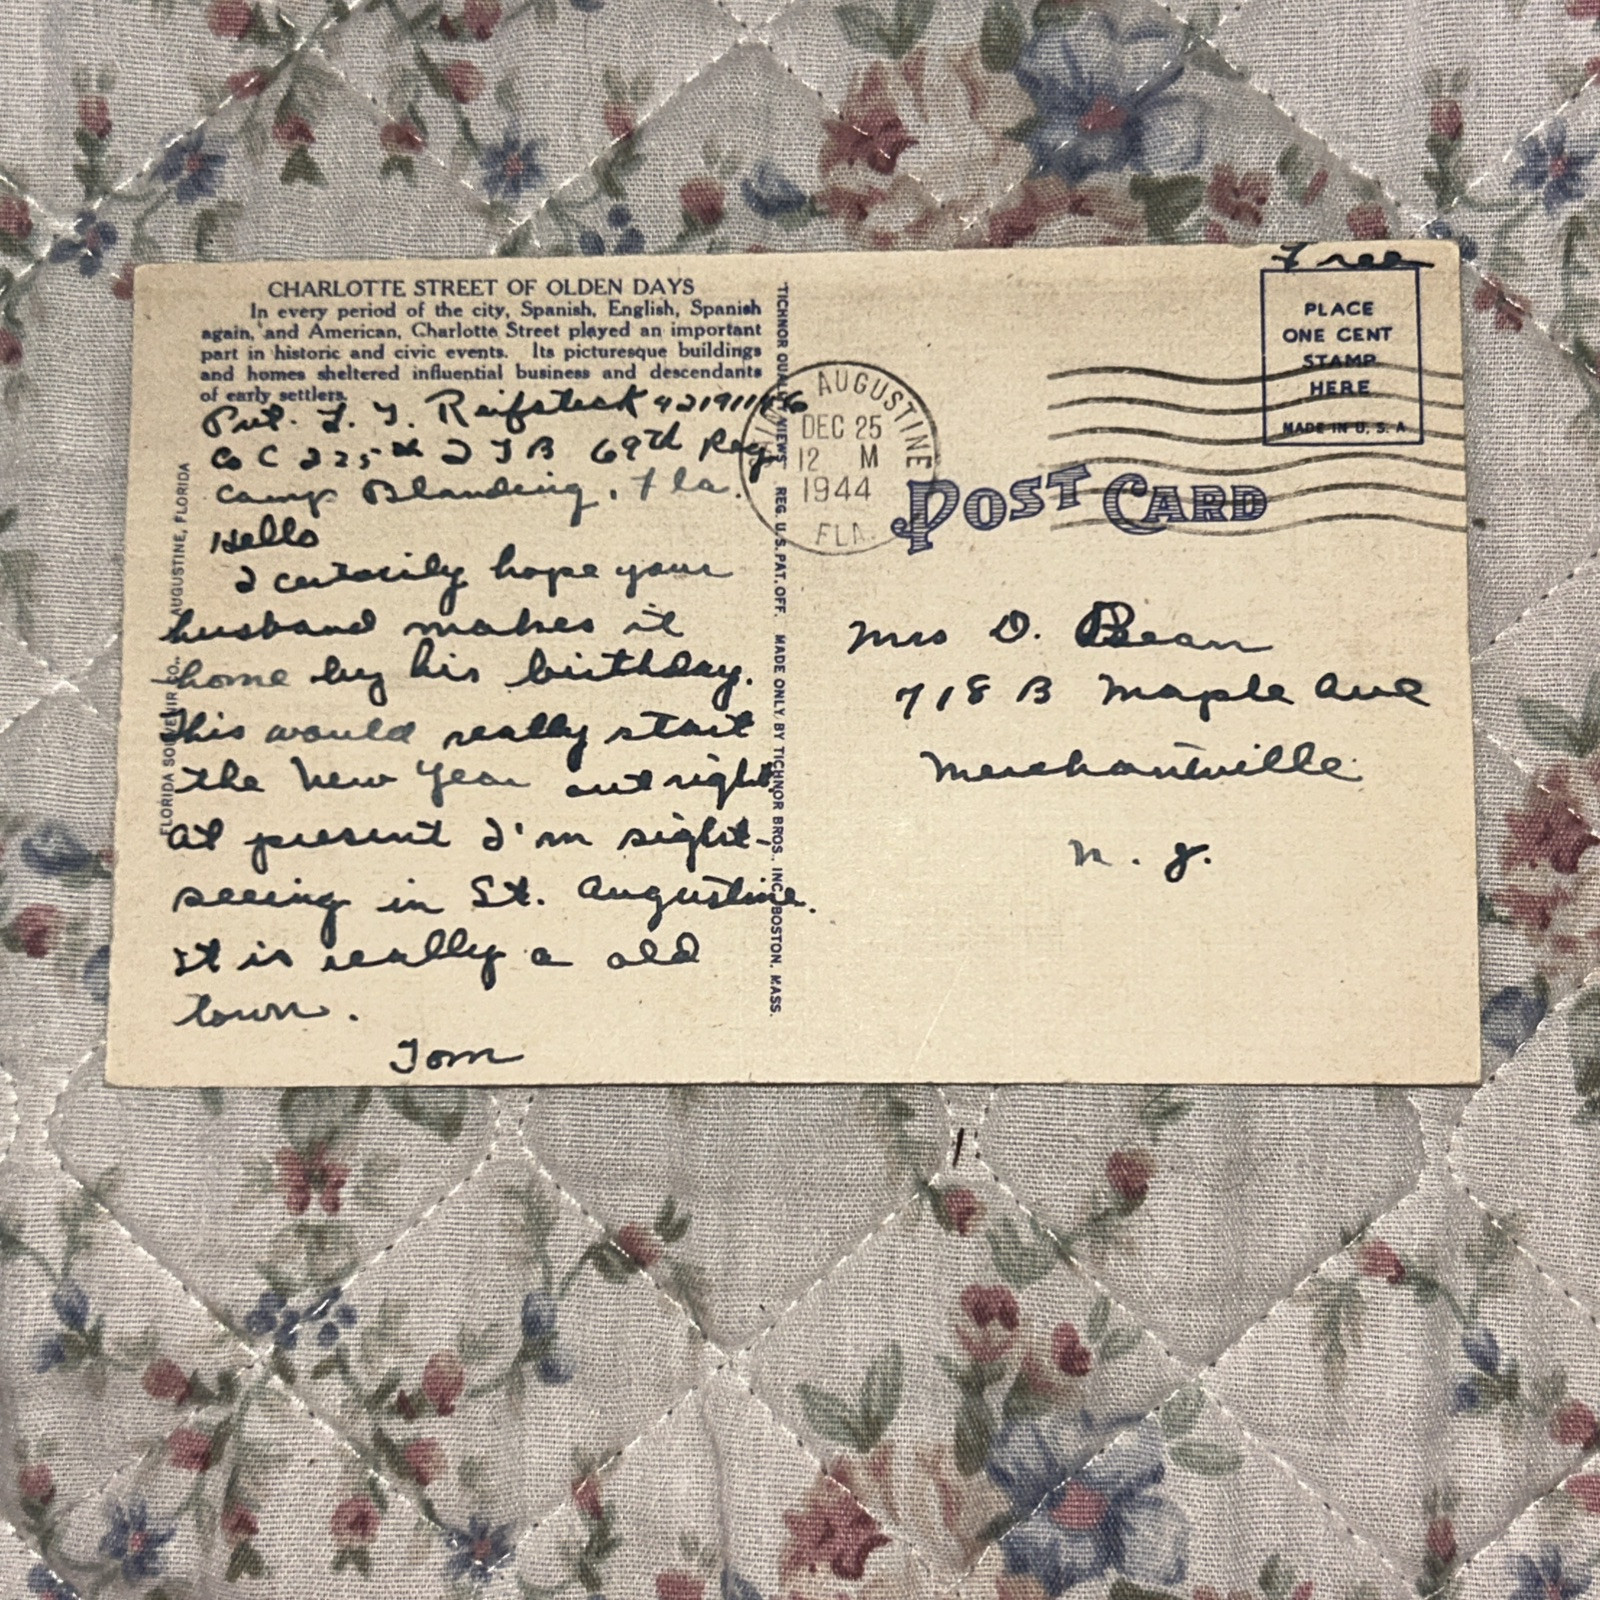 CHARLOTTE STREET OF OLDEN DAYS
In every period of the city, Spanish, English, Spanish
again, and American, Charlotte Street played an important
part in historic and civic events. Its picturesque buildings
and homes sheltered influential business and descendants
of early settlers.
Pvt. T. J. Reifsteck
Co C 225th I T B 69th Reg
Camp Blanding, Fla.
Hello
I certainly hope your
husband makes it
home by his birthday.
This would really start
the New Year out right.
At present I'm sight-
seeing in St. Augustine.
It is really a old
town.
Tom
FLORIDA SOUVENIR CO., AUGUSTINE, FLORIDA
TICHNOR QUALITY VIEWS REG. U.S. PAT. OFF. MADE ONLY BY TICHNOR BROS., INC., BOSTON, MASS.
AUGUSTINE
DEC 25
12 M
1944
FLA.
Free
PLACE
ONE CENT
STAMP
HERE
MADE IN U.S.A
POST CARD
Mrs D. Bean
718 B Maple Ave
Merchantville
N. J.